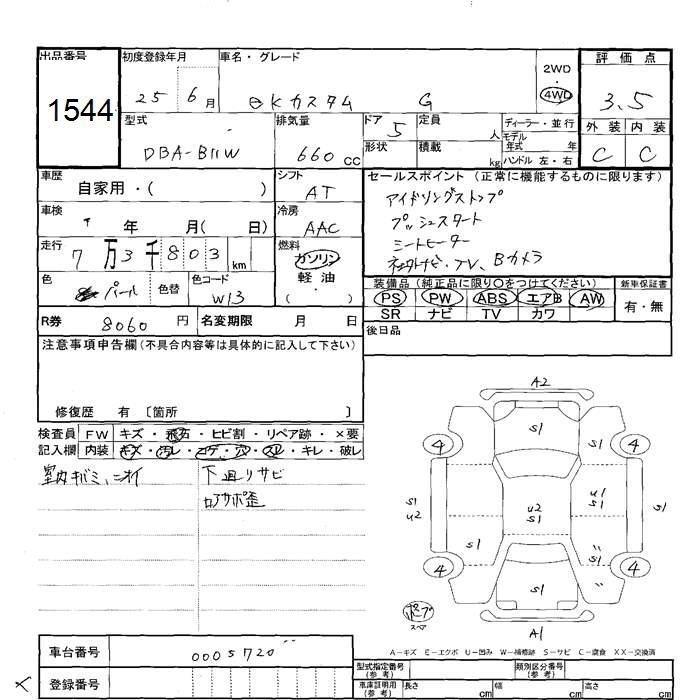 出品番号
1544
初度登録年月
25 6月
車名・グレード
eKカスタム G
2WD
・
4WD
評価点
3.5
外装 内装
C C
型式
DBA-B11W
排気量
660 cc
ドア 5
形状
定員 人
積載 kg
ディーラー・並行
モデル年式 年
ハンドル 左・右
車歴
自家用・( )
シフト
AT
車検
年 月( 日)
冷房
AAC
走行
7万3千803 km
燃料
ガソリン
軽油
・
( )
色
パール
色替
色コード
W13
R券 8060 円
名変期限 月 日
セールスポイント (正常に機能するものに限ります)
アイドリングストップ
プッシュスタート
シートヒーター
社外ナビ・TV、Bカメラ
装備品 (純正品に限り○をつけてください)
PS PW ABS エアB AW
SR ナビ TV カワ
新車保証書
有・無
後日品
注意事項申告欄(不具合内容等は具体的に記入して下さい)
修復歴 有 〔箇所 〕
検査員 FW キズ・飛石・ヒビ割・リペア跡・×要
記入欄 内装 キズ・汚レ・コゲ・穴・スレ・キレ・破レ
室内キバミ、ニオイ
下廻リサビ
コアサポ歪
A2
S1
4
4
S1
S1
U2
U2
S1
U1
S1
S1
S1
4
4
S1
スペア
A1
A-キズ E-エクボ U-凹み W-補修跡 S-サビ C-腐食 XX-交換済
車台番号 0005720
登録番号
型式指定番号
(参考)
類別区分番号
(参考)
車庫証明用
(参考)
長さ cm
幅 cm
高さ cm